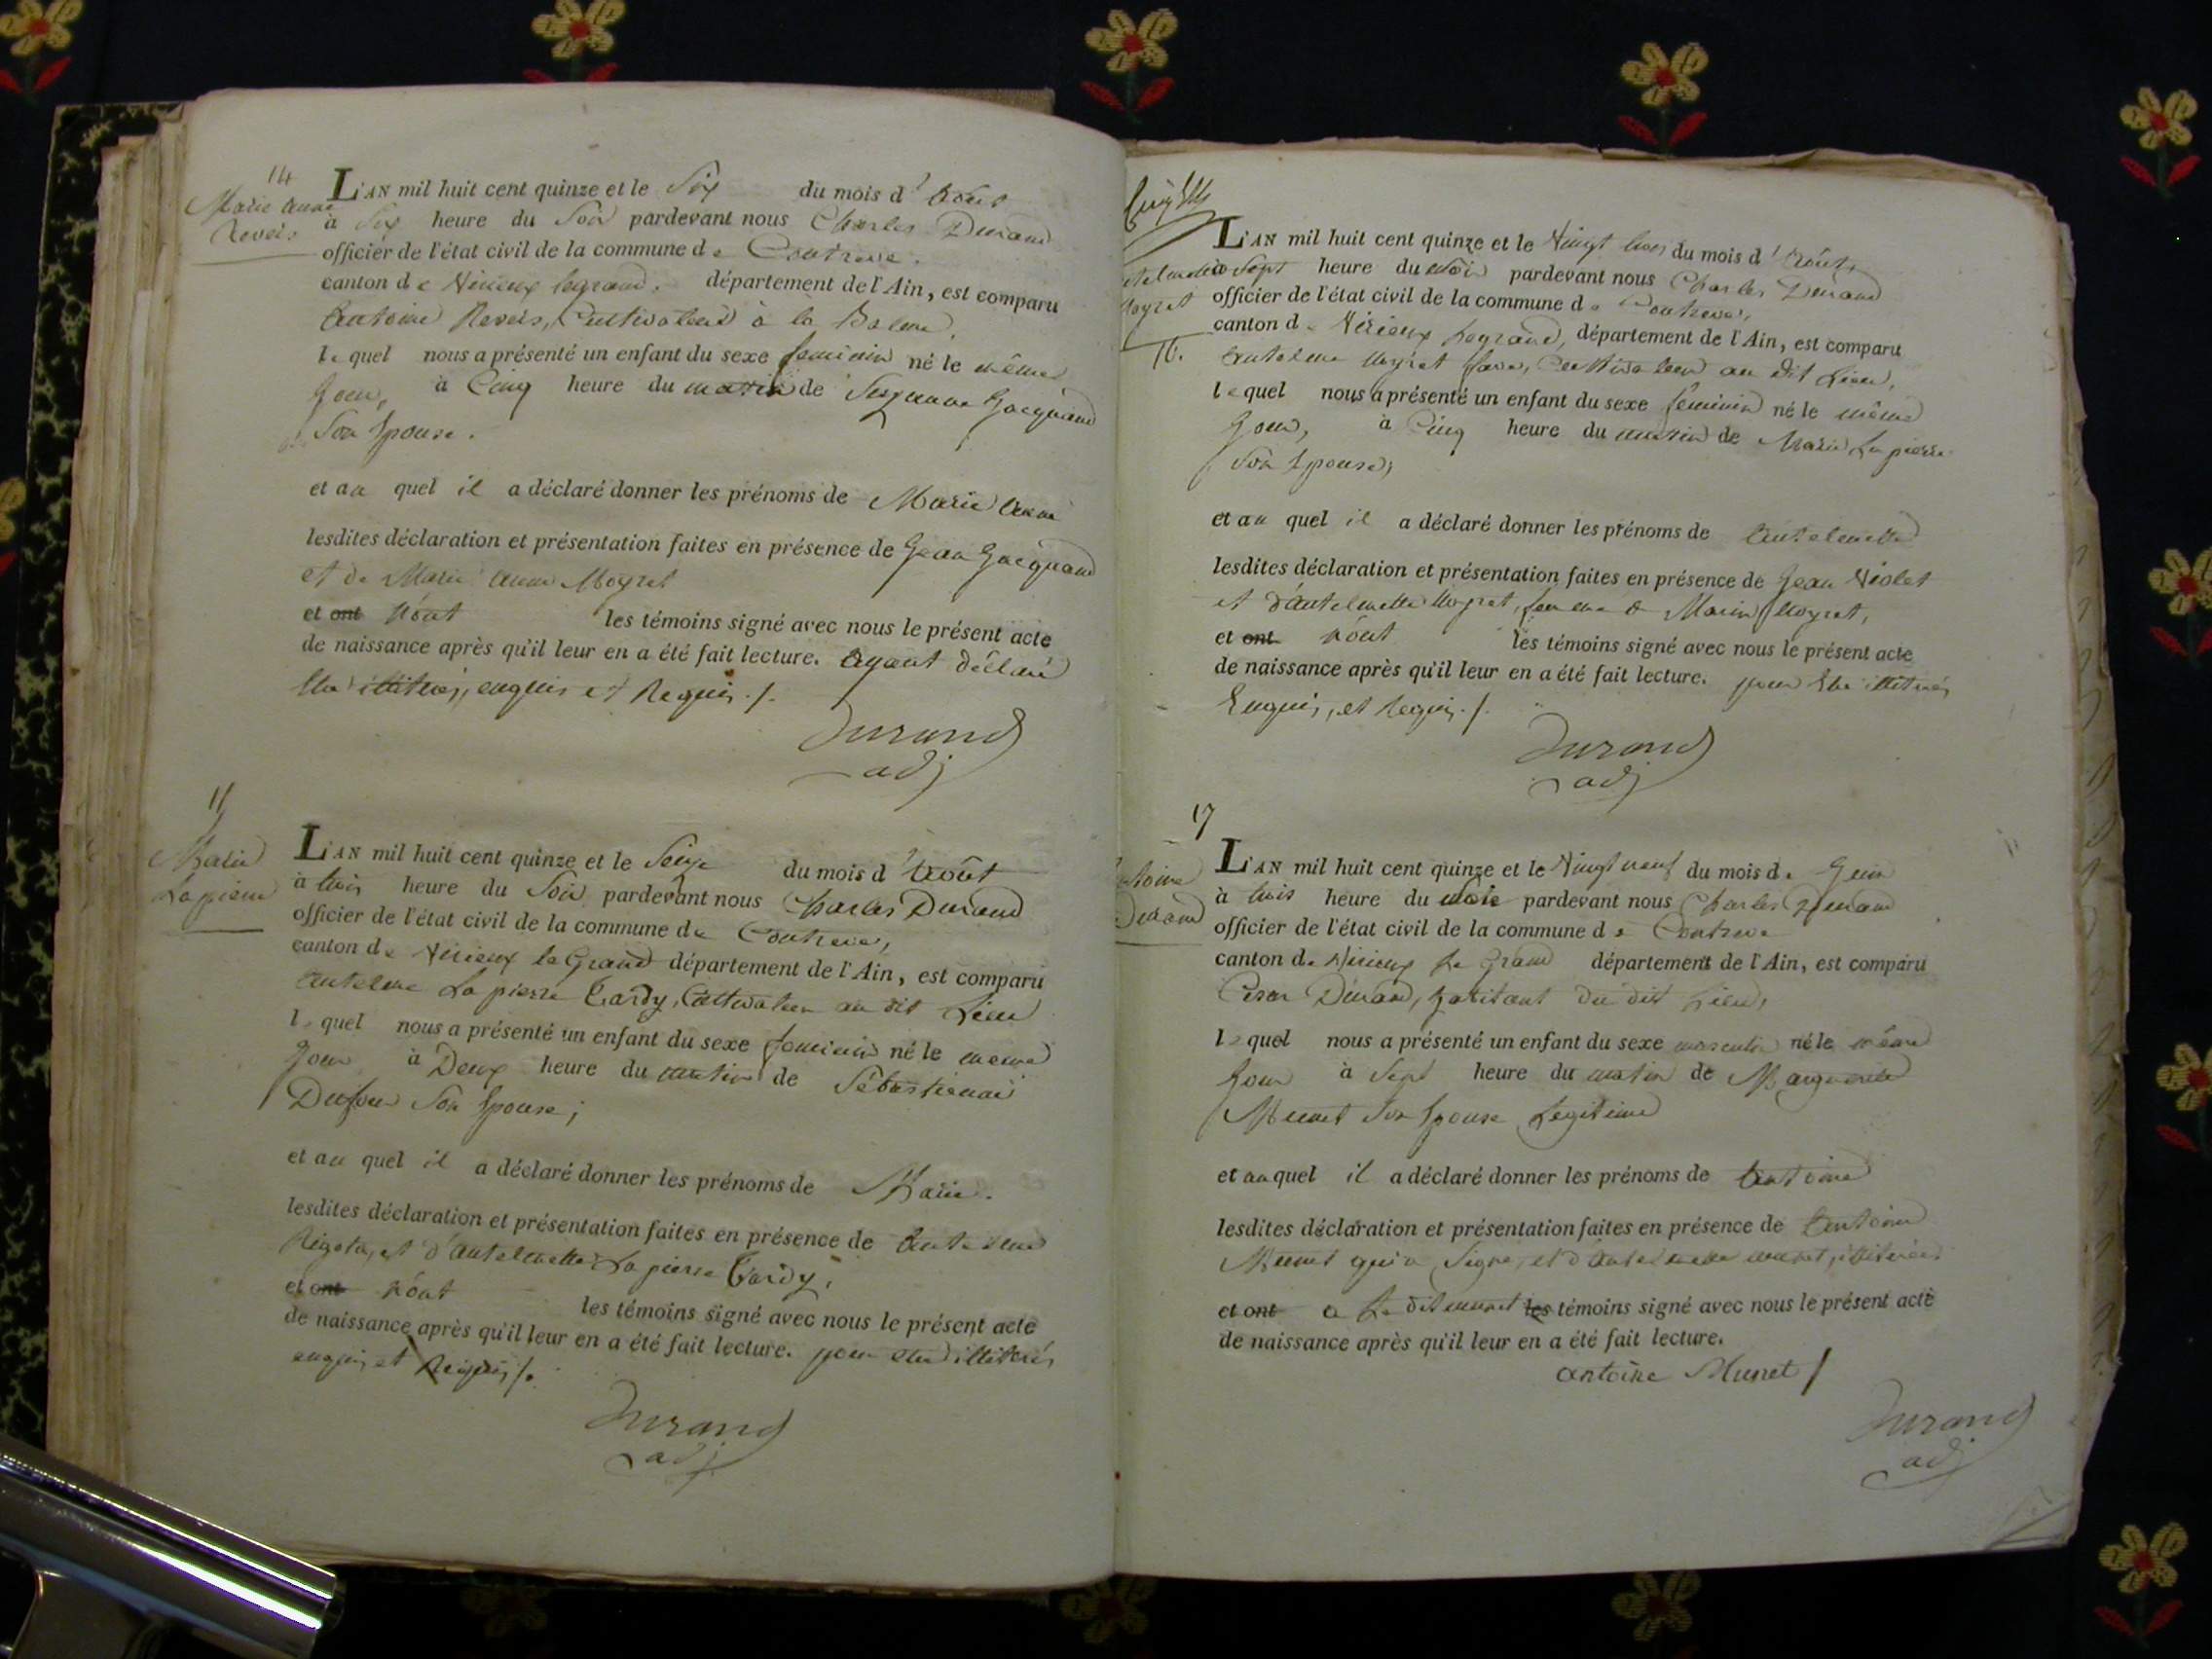 14
Marie Anne
Reveis
L'AN mil huit cent quinze et le Six du mois d' Août
à Six heure du Soir pardevant nous Charles Durand
officier de l'état civil de la commune de Contrevé.
canton de Virieux legrand. département de l'Ain, est comparu
Antoine Reveis, Cultivateur à la Balme,
lequel nous a présenté un enfant du sexe feminin né le même
Jour, à Cinq heure du matin de Suzanne Jacquand
Son Epouse.
et au quel il a déclaré donner les prénoms de Marie Anne
lesdites déclaration et présentation faites en présence de Jean Jacquand
et de Marie Anne Moyret
et ont n'ont les témoins signé avec nous le présent acte
de naissance après qu'il leur en a été fait lecture. ayant déclaré
illitrés, enquis et Requis ./.
Durand
adj
15
Marie
Lapierre
L'AN mil huit cent quinze et le Seize du mois d' Août
à trois heure du Soir pardevant nous Charles Durand
officier de l'état civil de la commune de Contrevé,
canton de Virieux le Grand département de l'Ain, est comparu
Antelme La pierre Tardy, Cultivateur au dit Lieu
lequel nous a présenté un enfant du sexe feminin né le meme
Jour à Deux heure du matin de Sébastienne
Dufour Son Epouse ;
et au quel il a déclaré donner les prénoms de Marie.
lesdites déclaration et présentation faites en présence de Antelme
et d'Antelmette La pierre Tardy,
et ont n'ont les témoins signé avec nous le présent acte
de naissance après qu'il leur en a été fait lecture. pour etre illiterés
enquis et Requis ./.
Durand
adj
Moyret
16.
L'AN mil huit cent quinze et le Vingt trois du mois d' Août,
à Sept heure du Soir pardevant nous Charles Durand
officier de l'état civil de la commune de Contrevé,
canton de Virieux Legrand, département de l'Ain, est comparu
Antelme Moyret Cultivateur au dit Lieu,
lequel nous a présenté un enfant du sexe feminin né le même
Jour, à Cinq heure du matin de Marie La pierre
Son Epouse,
et au quel il a déclaré donner les prénoms de Antelmette
lesdites déclaration et présentation faites en présence de Jean Violet
et d'Antelmette Moyret, femme de Marin Moyret,
et ont n'ont les témoins signé avec nous le présent acte
de naissance après qu'il leur en a été fait lecture. pour Etre illitrés
Enquis, et Requis ./.
Durand
adj
17
Antoine
Durand
L'AN mil huit cent quinze et le Vingt neuf du mois de Juin
à trois heure du Soir pardevant nous Charles Durand
officier de l'état civil de la commune de Contrevé
canton de Virieux Le Grand département de l'Ain, est comparu
Cesar Durand, habitant du dit Lieu,
lequel nous a présenté un enfant du sexe masculin né le même
Jour à Sept heure du matin de Marguerite
Munet Son Epouse Legitime
et au quel il a déclaré donner les prénoms de Antoine
lesdites déclaration et présentation faites en présence de Antoine
Munet qui a Signé, et d'Antelmette munet, illiterée
et ont a Le dit munet les témoins signé avec nous le présent acte
de naissance après qu'il leur en a été fait lecture.
antoine Munet /
Durand
adj